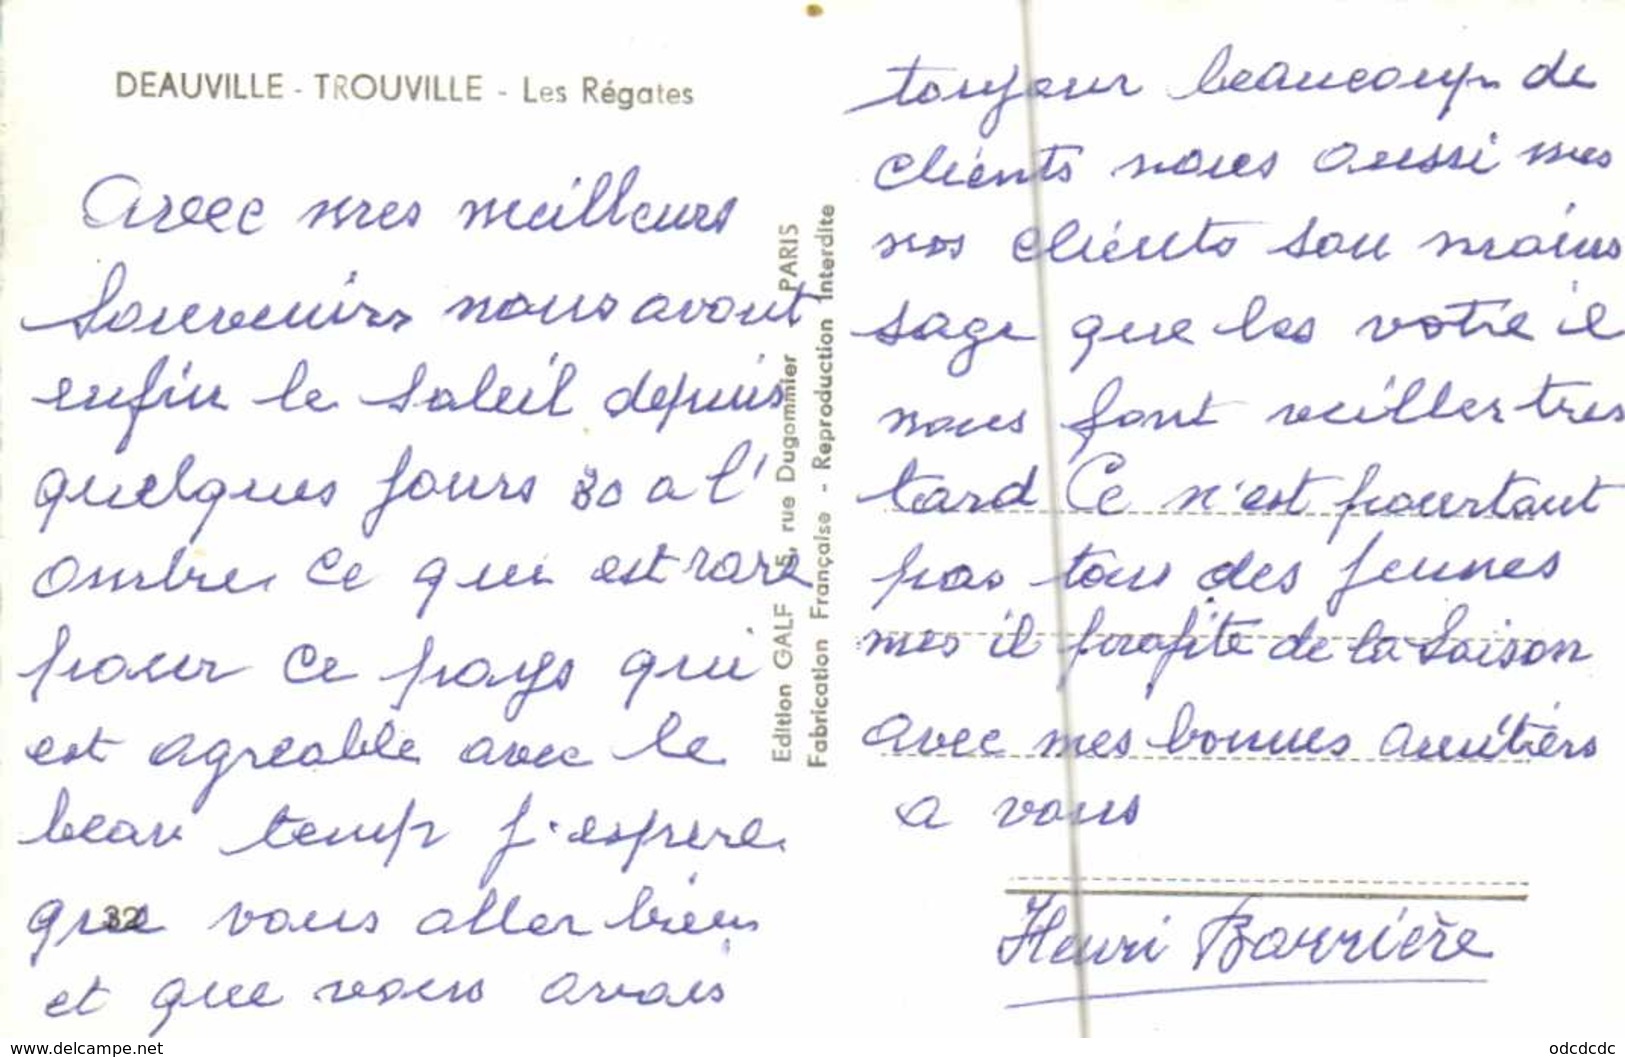 DEAUVILLE - TROUVILLE - Les Régates
Avec mes meilleurs
souvenirs nous avont
enfin le soleil depuis
quelques jours 30 a l'
ombre. Ce qui est rare
pour ce pays qui
est agreable avec le
beau temp j'espere.
que vous aller bien
et que vous avais
32
Edition GALF 5, rue Dugommier PARIS
Fabrication Française - Reproduction Interdite
toujour beaucoup de
clients nous aussi mes
nos clients son moins
sage que les votre il
nous font veiller tres
tard Ce n'est pourtant
pas tous des jeunes
mes il profite de la saison
avec mes bonnes amitiers
a vous
Henri Barrière
www.delcampe.net
odcdcdc